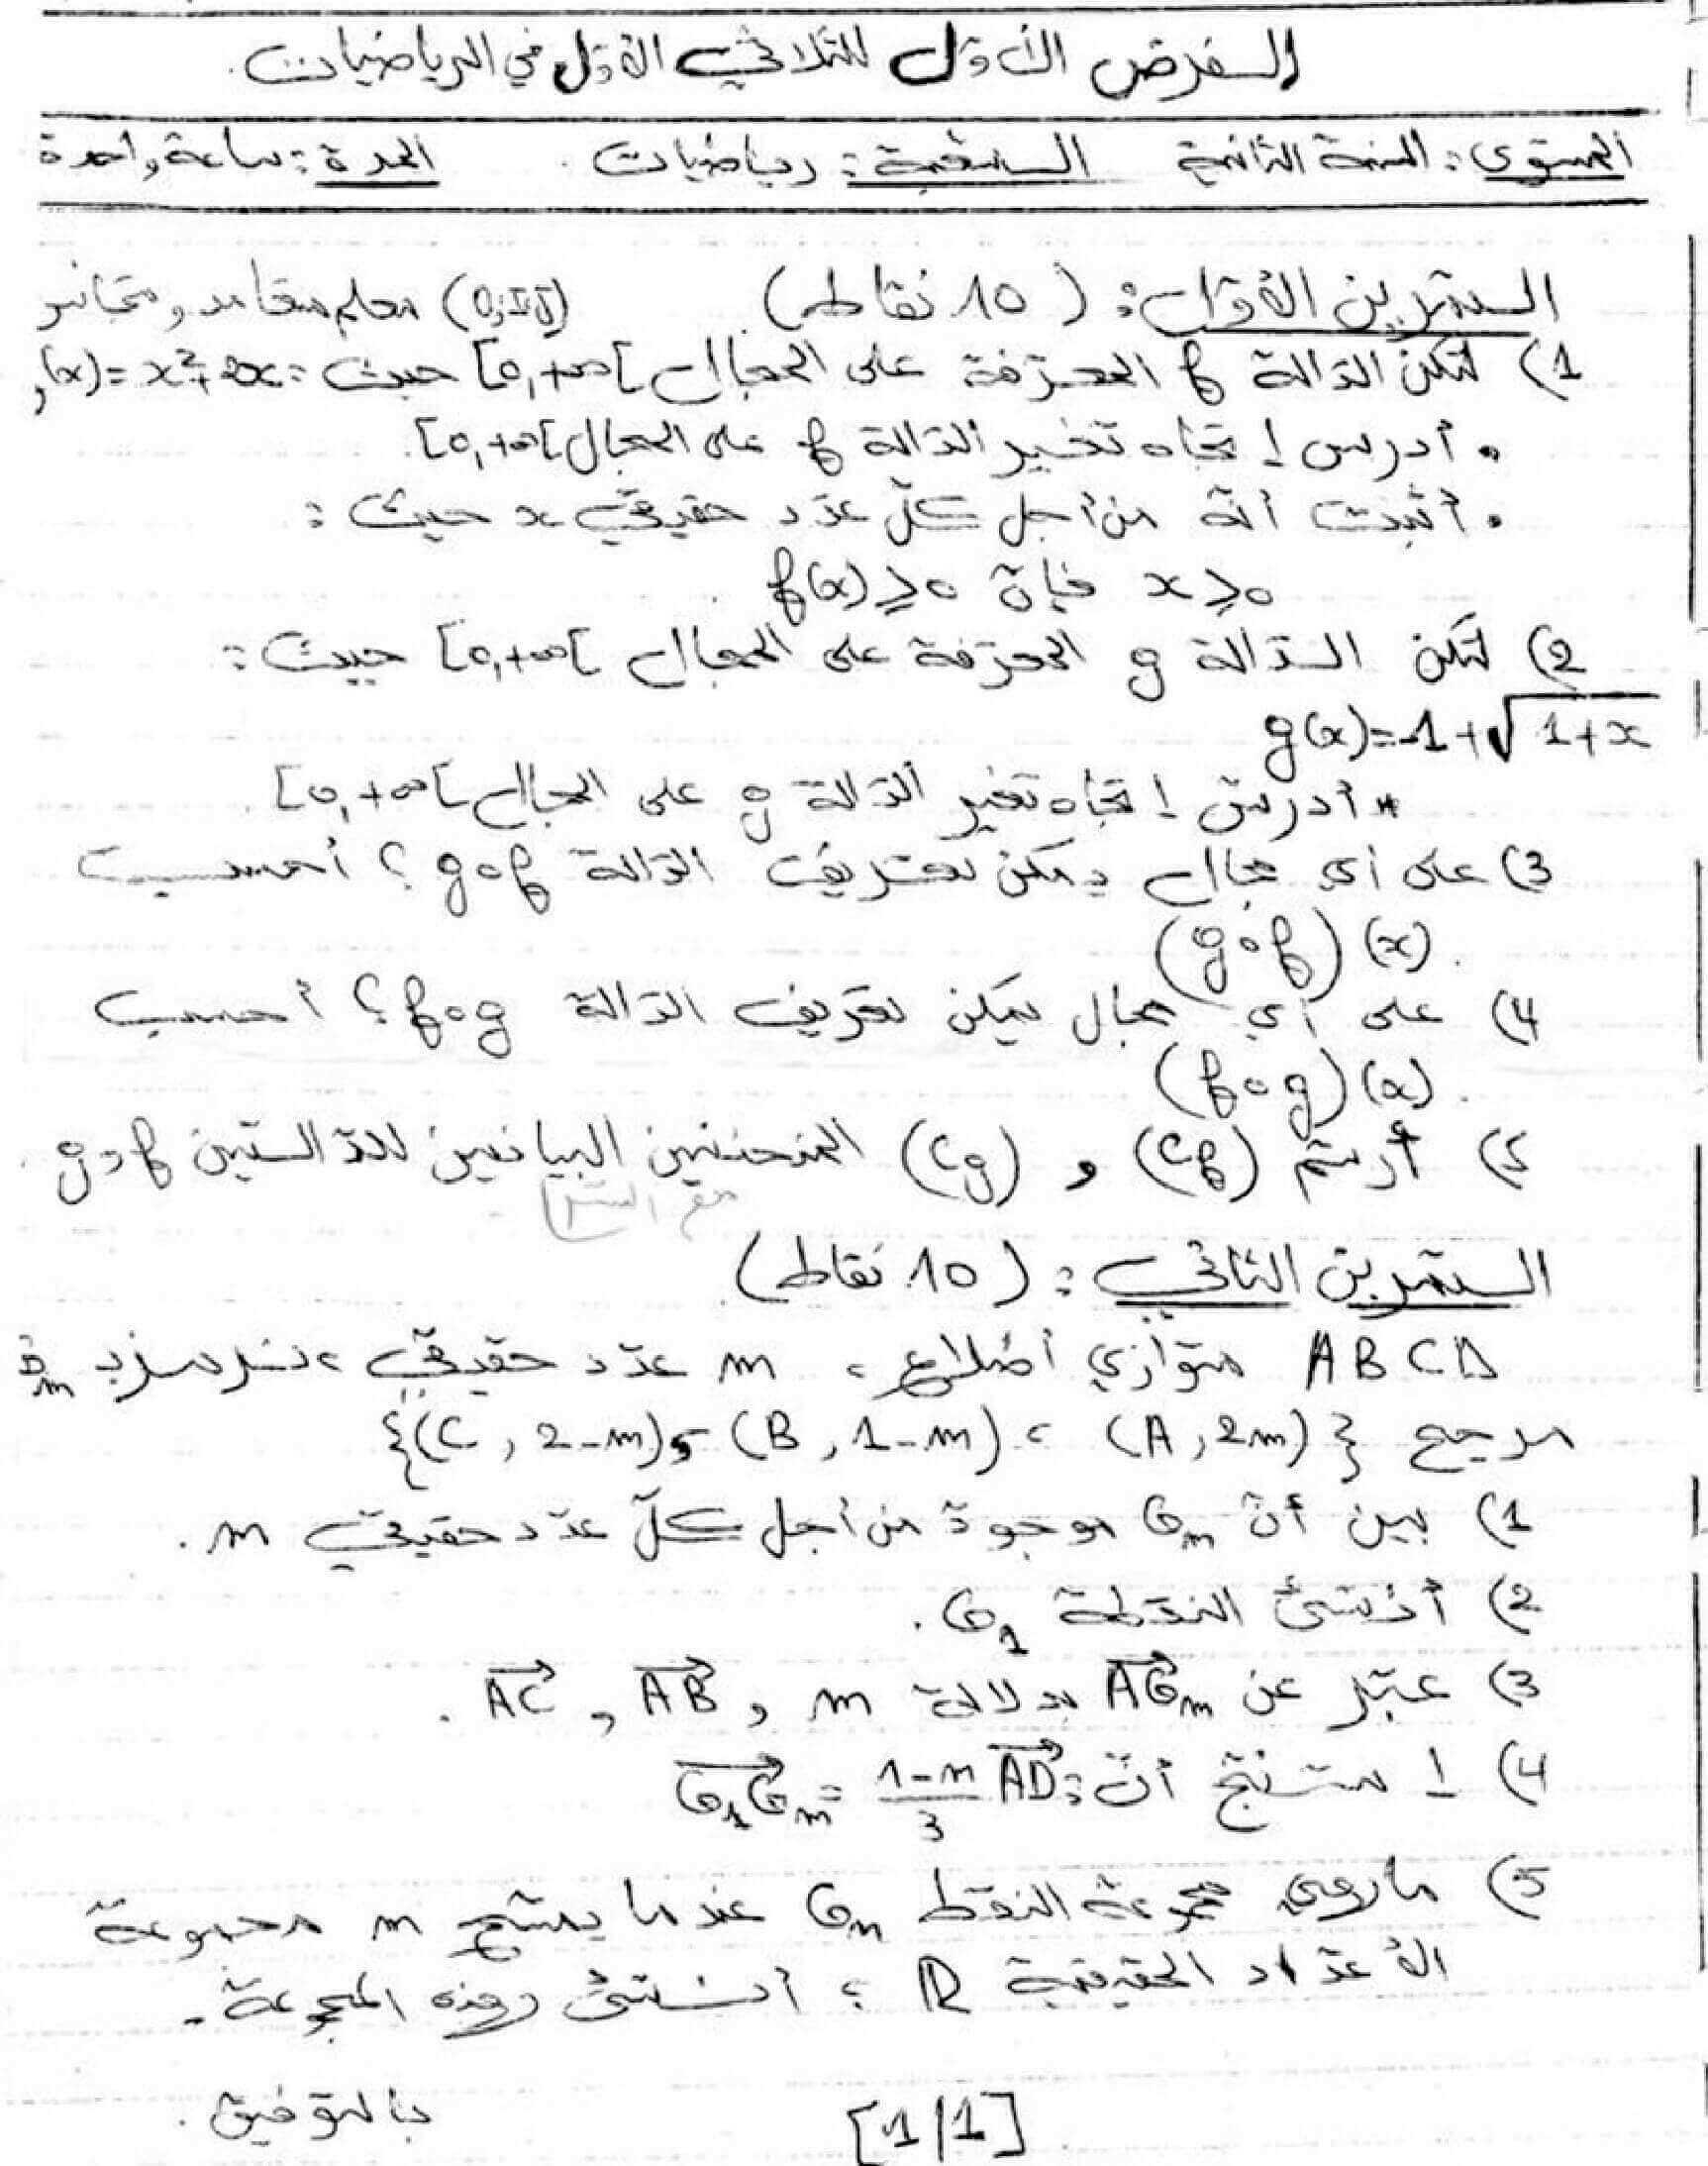 الفرض الأول للثلاثي الأول في الرياضيات.
المستوى: السنة الثانية الشعبة: رياضيات. المدة: ساعة واحدة
التمرين الأول: (10 نقاط) (O;I;J) معلم متعامد و متجانس
1) لتكن الدالة f المعرفة على المجال [0,+∞[ حيث: f(x)=x²+2x
• أدرس إتجاه تغير الدالة f على المجال [0,+∞[.
• أثبت أنّه من أجل كلّ عدد حقيقي x حيث:
x≥0 فإنّ f(x)≥0.
2) لتكن الدالة g المعرفة على المجال [0,+∞[ حيث:
g(x)=-1+√1+x
• أدرس إتجاه تغير الدالة g على المجال [0,+∞[.
3) على أي مجال يمكن تعريف الدالة g∘f؟ أحسب
(g∘f)(x).
4) على أي مجال يمكن تعريف الدالة f∘g؟ أحسب
(f∘g)(x).
5) أرسم (Cf) و (Cg) المنحنيين البيانيين للدالتين f و g
مع الشرح
التمرين الثاني: (10 نقاط)
ABCD متوازي أضلاع، m عدد حقيقي، نرمز بـ Gm
مرجح {(A,2m)، (B,1-m)، (C,2-m)}
1) بين أنّ Gm موجودة من أجل كلّ عدد حقيقي m.
2) أنشئ النقطة G₁.
3) عبّر عن AGm بدلالة m و AB و AC.
4) إستنتج أنّ: G₁Gm = 1-m/3 AD
5) ما هي مجموعة النقط Gm عندما يمسح m مجموعة
الأعداد الحقيقية R؟ أنشئ هذه المجموعة.
[1/1] بالتوفيق.